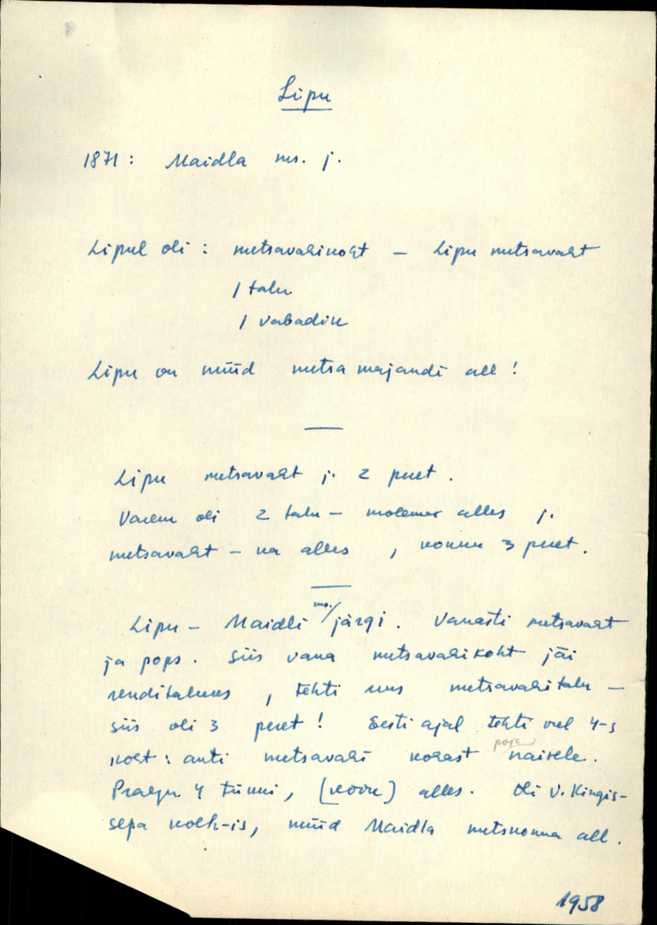 Lipu
1871: Maidla ms. j.
Lipul oli: metsavahikoht – Lipu metsavaht
1 talu
1 vabadik
Lipu on nüüd metsamajandi all!
Lipu metsavaht j. 2 peret.
Varem oli 2 talu – mõlemad alles j.
metsavaht – ka alles, kokku 3 peret.
Lipu – Maidli ms./järgi. Vanasti metsavaht
ja pops. Siis vana metsavahikoht jäi
renditaluks, tehti uus metsavahitalu –
siis oli 3 peret! Eesti ajal tehti veel 4-s
koht: anti metsavahi kohast popsi naisele.
Praegu 4 tümi, (koovu) alles. Oli V. Kingis-
sepa kolh-is, nüüd Maidla metskonna all.
1958